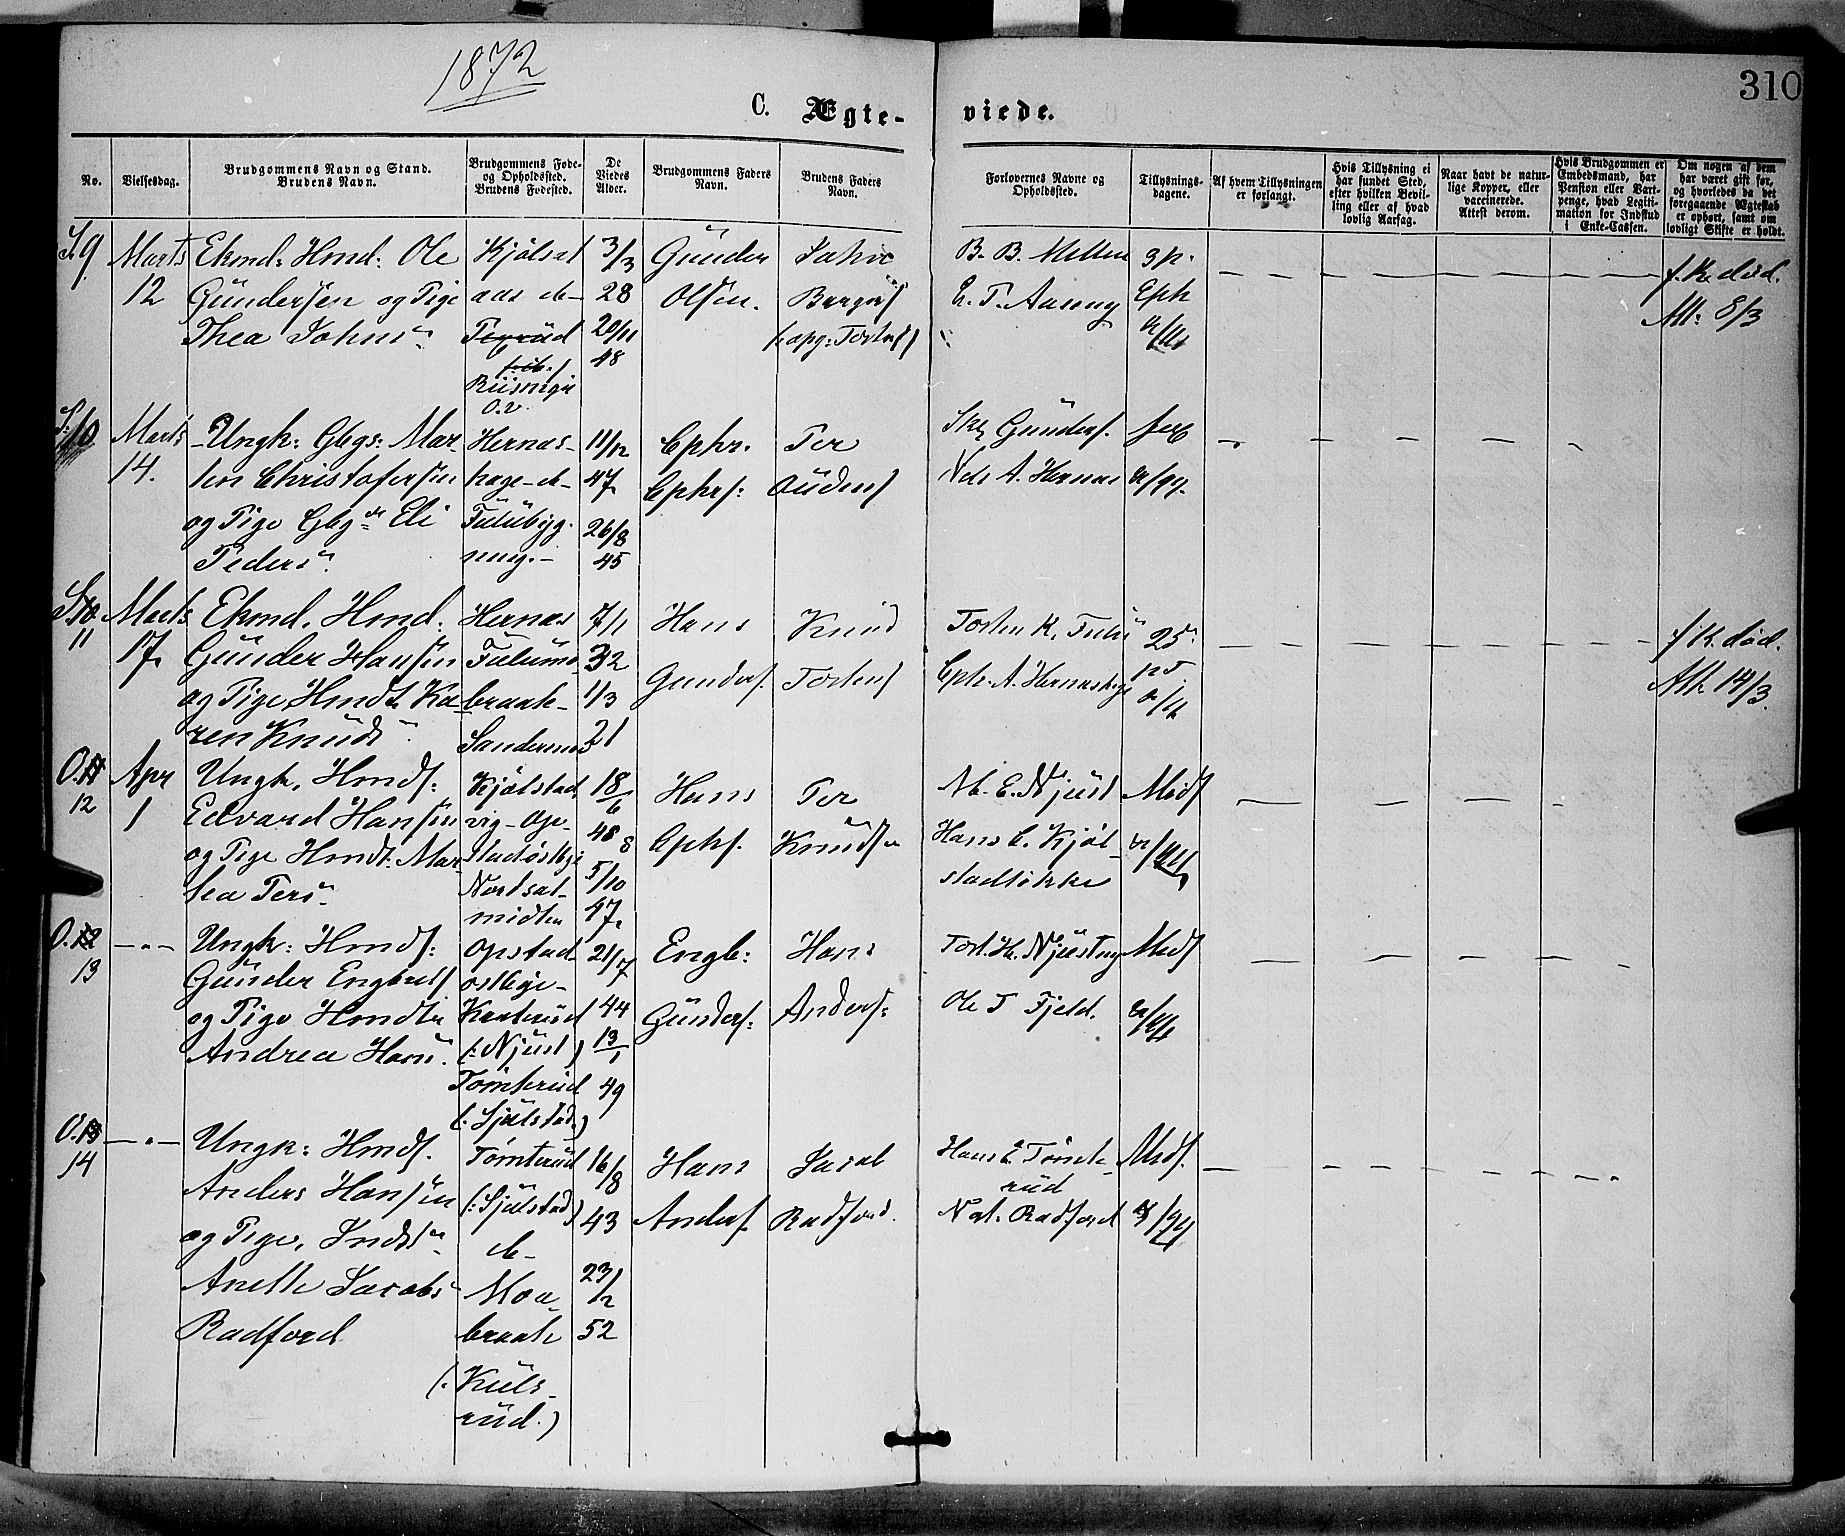 1872
310
C. Ægte-
viede.
No.
Vielsesdag.
Brudgommens Navn og Stand.
Brudens Navn.
Brudgommens Føde-
og Opholdssted.
Brudens Fødested.
De
Viedes
Alder.
Brudgommens Faders
Navn.
Brudens Faders
Navn.
Forlovernes Navne og
Opholdssted.
Tillysnings-
dagene.
Af hvem Tillysningen
er forlangt.
Hvis Tillysning ei
har fundet Sted,
efter hvilken Bevil-
ling eller af hvad
lovlig Aarsag.
Naar havt de natur-
lige Kopper, eller
vaccinerede.
Attest derom.
Hvis Brudgommen er
Embedsmand, har
Pension eller Vart-
penge, hvad Legiti-
mation for Indskud
i Enke-Cassen.
Om nogen af dem
har været gift før,
og hvorledes da det
foregaaende Ægteskab
er ophørt, samt om
lovligt Skifte er holdt.
S. 9
Marts
12
Ekmd: Hmd: Ole
Gundersen og Pige
Thea Johns
Kjølset
aas
Riisneqie
3/3
28
20/11
48
Gunder
Olsen.
Johs
Bergers
(opg: Tostens)
B. B. Mellem
E. T. Aaseng
gp.
Eph
f. K. død.
Att: 8/3
S. 10
Marts
14.
Ungk: Gbgs: Mar-
tin Christofersen
og Pige Gbg Eli
Peders
Hernæs-
hage
Tulubyg-
ning.
11/12
47
26/8
45
Cphr.
Cphrs:
Per
Oudens
Skz Gunders.
Nils A. Hernæs
S. 10
11
Marts
17.
Ekmd. Hmd.
Gunder Hansen
og Pige Hmdt. Ka-
ren Knuds
Hernæs
Tulumo
braate
Sandermo
7/1
32
1/3
21
Hans
Gunders.
Knud
Tostens
Tosten K. Tulu
Cph. A. Hernæshage
25
f K. død.
Att. 14/3.
O. 11
12
Apr
1
Ungk. Hmds:
Edvard Hansen
og Pige Hmdt. Mar-
tea Pers
Kjølstad
vig - Op-
stadøstbye
Nordsæt-
midten
18/6
48
5/10
47.
Hans
Cphs.
Per
Knudsen
M. E. Njust
Hans C. Kjøl-
stadløkke
Mids
O. 12
13
— " —
Ungk: Hmds:
Gunder Engbrets
og Pige Hmdtr
Andrea Hans
Opstad
østbye-
Kraterud
(: Njust)
Tømterud
(: Sjulstad.)
21/7
44
13/1
49
Engb:
Gunders:
Hans
Anders:
Tost. H. Njusteng
Ole T Fjeld.
Mids
O. 13
14
— " —
Ungk: Hmds.
Anders Hansen
og Pige, Inds
Anette Jacobs
Radford
Tømterud
(: Sjulstad)
Moa-
braate
(: Kuls-
rud.)
16/8
43
23/2
52
Hans
Anders.
Jacob
Radford.
Hans E. Tømte-
rud
Nat. Radford
Mids.